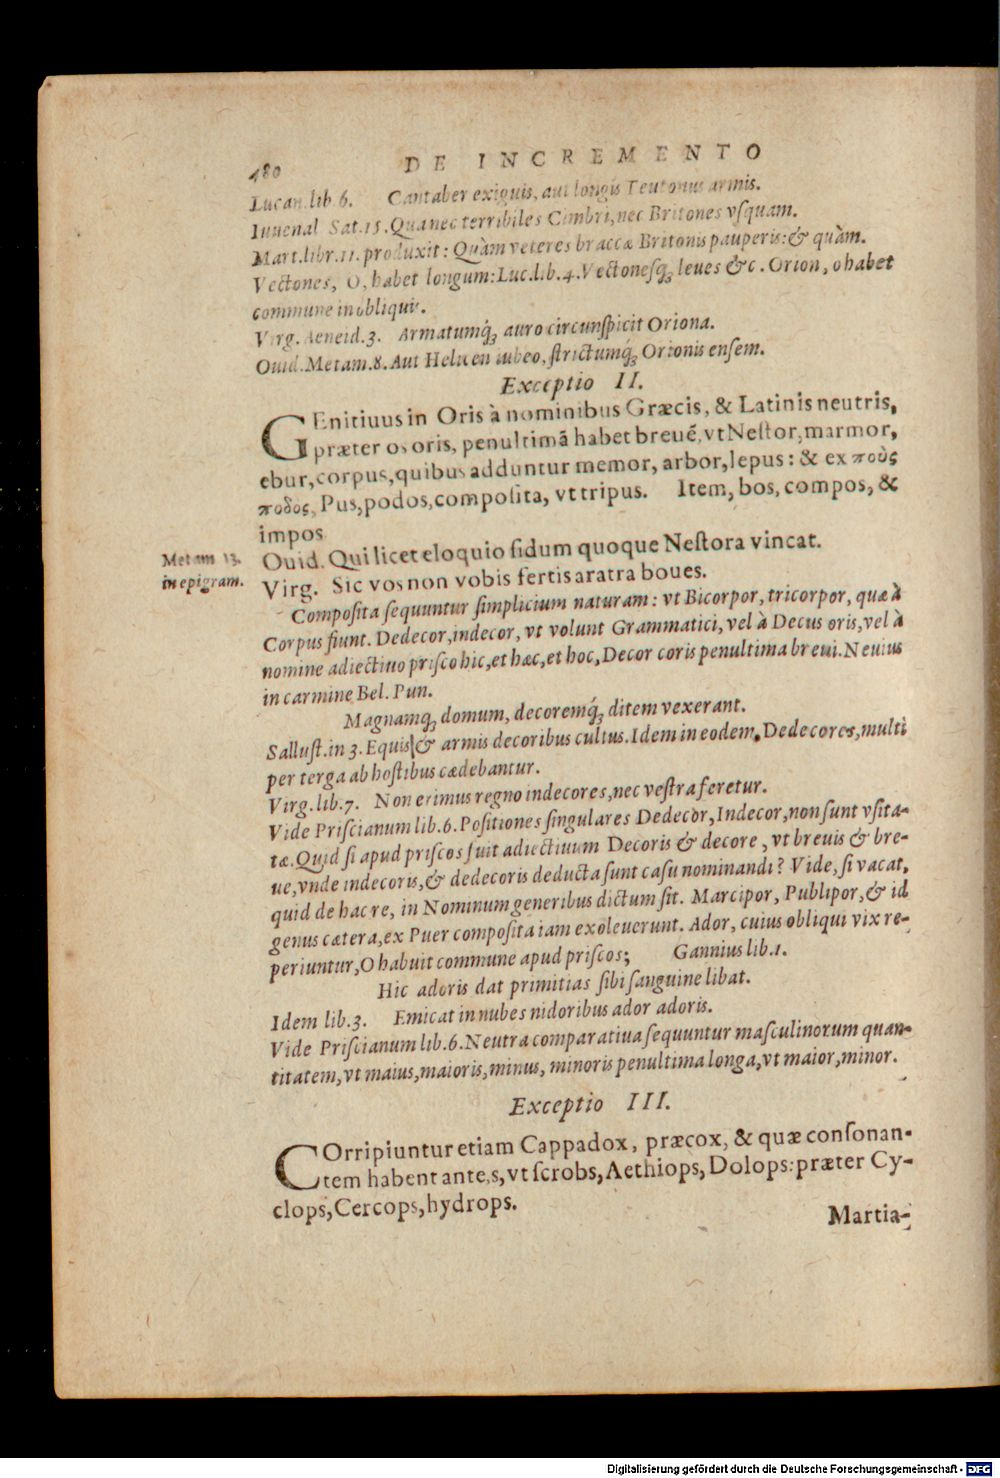 480 DE INCREMENTO
Lucan.lib.6. Cantaber exiguis, aut longis Teutonus armis.
Iuuenal Sat.15. Qua nec terribiles Cimbri, nec Britones vſquam.
Mart.libr.11.produxit: Quàm veteres braccæ Britonis pauperis:& quàm.
Vectones, O, habet longum: Luc.lib.4. Vectoneſq́; leues &c. Orion, o habet
commune in obliquis.
Virg. Aeneid.3. Armatumq́; auro circunſpicit Oriona.
Ouid.Metam.8. Aut Helicen iubeo, ſtrictumq́; Orionis enſem.
Exceptio II.
GEnitiuus in Oris à nominibus Græcis, & Latinis neutris,
præter os oris, penultimã habet breuẽ, vt Neſtor, marmor,
ebur, corpus, quibus adduntur memor, arbor, lepus: & ex πoὺς
ποδος, Pus, podos, compoſita, vt tripus. Item, bos, compos, &
impos
Metam 13. Ouid. Qui licet eloquio fidum quoque Neſtora vincat.
in epigram. Virg. Sic vos non vobis fertis aratra boues.
Compoſita ſequuntur ſimplicium naturam: vt Bicorpor, tricorpor, quæ à
Corpus fiunt. Dedecor, indecor, vt volunt Grammatici, vel à Decus oris, vel à
nomine adiectiuo priſco hic, et hæc, et hoc, Decor coris penultima breui. Neuius
in carmine Bel. Pun.
Magnamq́; domum, decoremq́; ditem vexerant.
Salluſt.in 3. Equis & armis decoribus cultus. Idem in eodem. Dedecores, multi
per terga ab hoſtibus cædebantur.
Virg.lib.7. Non erimus regno indecores, nec veſtra feretur.
Vide Priſcianum lib.6. Poſitiones ſingulares Dedecor, Indecor, non ſunt vſita-
tæ. Quid ſi apud priſcos fuit adiectiuum Decoris & decore, vt breuis & bre-
ue, vnde indecoris, & dedecoris deducta ſunt caſu nominandi? Vide, ſi vacat,
quid de hac re, in Nominum generibus dictum ſit. Marcipor, Publipor, & id
genus cætera, ex Puer compoſita iam exoleuerunt. Ador, cuius obliqui vix re-
periuntur, O habuit commune apud priſcos; Gannius lib.1.
Hic adoris dat primitias ſibi ſanguine libat.
Idem lib.3. Emicat in nubes nidoribus ador adoris.
Vide Priſcianum lib.6. Neutra comparatiua ſequuntur maſculinorum quan-
titatem, vt maius, maioris, minus, minoris penultima longa, vt maior, minor.
Exceptio III.
COrripiuntur etiam Cappadox, præcox, & quæ conſonan-
tem habent ante, s, vt ſcrobs, Aethiops, Dolops: præter Cy-
clops, Cercops, hydrops.
Martia-
Digitalisierung gefördert durch die Deutsche Forschungsgemeinschaft - DFG